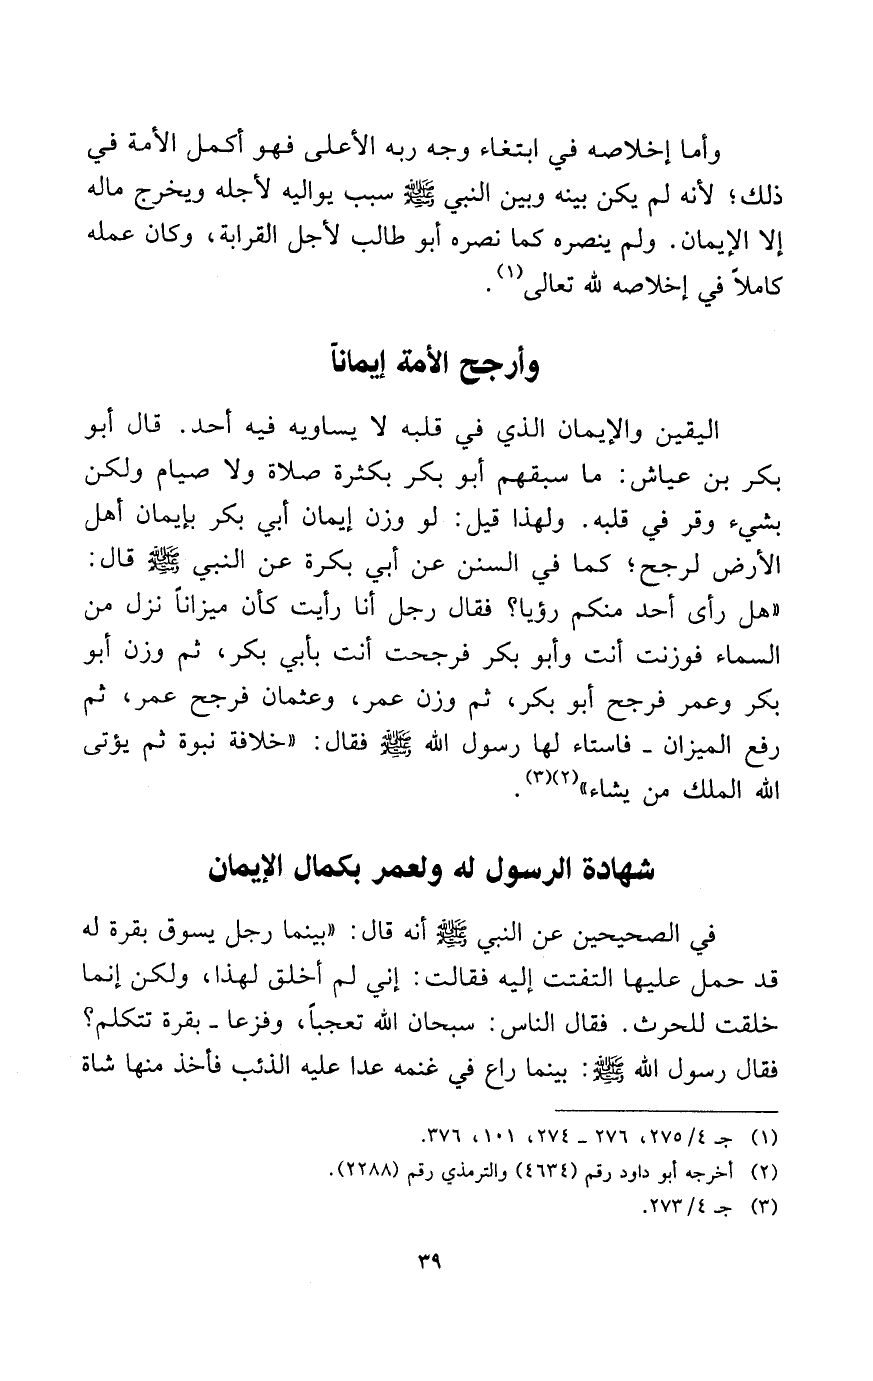 وأما إخلاصه في ابتغاء وجه ربه الأعلى فهو أكمل الأمة في
ذلك؛ لأنه لم يكن بينه وبين النبي ﷺ سبب يواليه لأجله ويخرج ماله
إلا الإيمان. ولم ينصره كما نصره أبو طالب لأجل القرابة، وكان عمله
كاملاً في إخلاصه لله تعالى(١).
وأرجح الأمة إيماناً
اليقين والإيمان الذي في قلبه لا يساويه فيه أحد. قال أبو
بكر بن عياش: ما سبقهم أبو بكر بكثرة صلاة ولا صيام ولكن
بشيء وقر في قلبه. ولهذا قيل: لو وزن إيمان أبي بكر بإيمان أهل
الأرض لرجح؛ كما في السنن عن أبي بكرة عن النبي ﷺ قال:
«هل رأى أحد منكم رؤيا؟ فقال رجل أنا رأيت كأن ميزاناً نزل من
السماء فوزنت أنت وأبو بكر فرجحت أنت بأبي بكر، ثم وزن أبو
بكر وعمر فرجح أبو بكر، ثم وزن عمر، وعثمان فرجح عمر، ثم
رفع الميزان ـ فاستاء لها رسول الله ﷺ فقال: «خلافة نبوة ثم يؤتى
الله الملك من يشاء»(٢)(٣).
شهادة الرسول له ولعمر بكمال الإيمان
في الصحيحين عن النبي ﷺ أنه قال: «بينما رجل يسوق بقرة له
قد حمل عليها التفتت إليه فقالت: إني لم أخلق لهذا، ولكن إنما
خلقت للحرث. فقال الناس: سبحان الله تعجباً، وفزعا ـ بقرة تتكلم؟
فقال رسول الله ﷺ: بينما راع في غنمه عدا عليه الذئب فأخذ منها شاة
(١) جـ ٤/ ٢٧٥، ٢٧٦ ـ ٢٧٤، ١٠١، ٣٧٦.
(٢) أخرجه أبو داود رقم (٤٦٣٤) والترمذي رقم (٢٢٨٨).
(٣) جـ ٤/ ٢٧٣.
٣٩